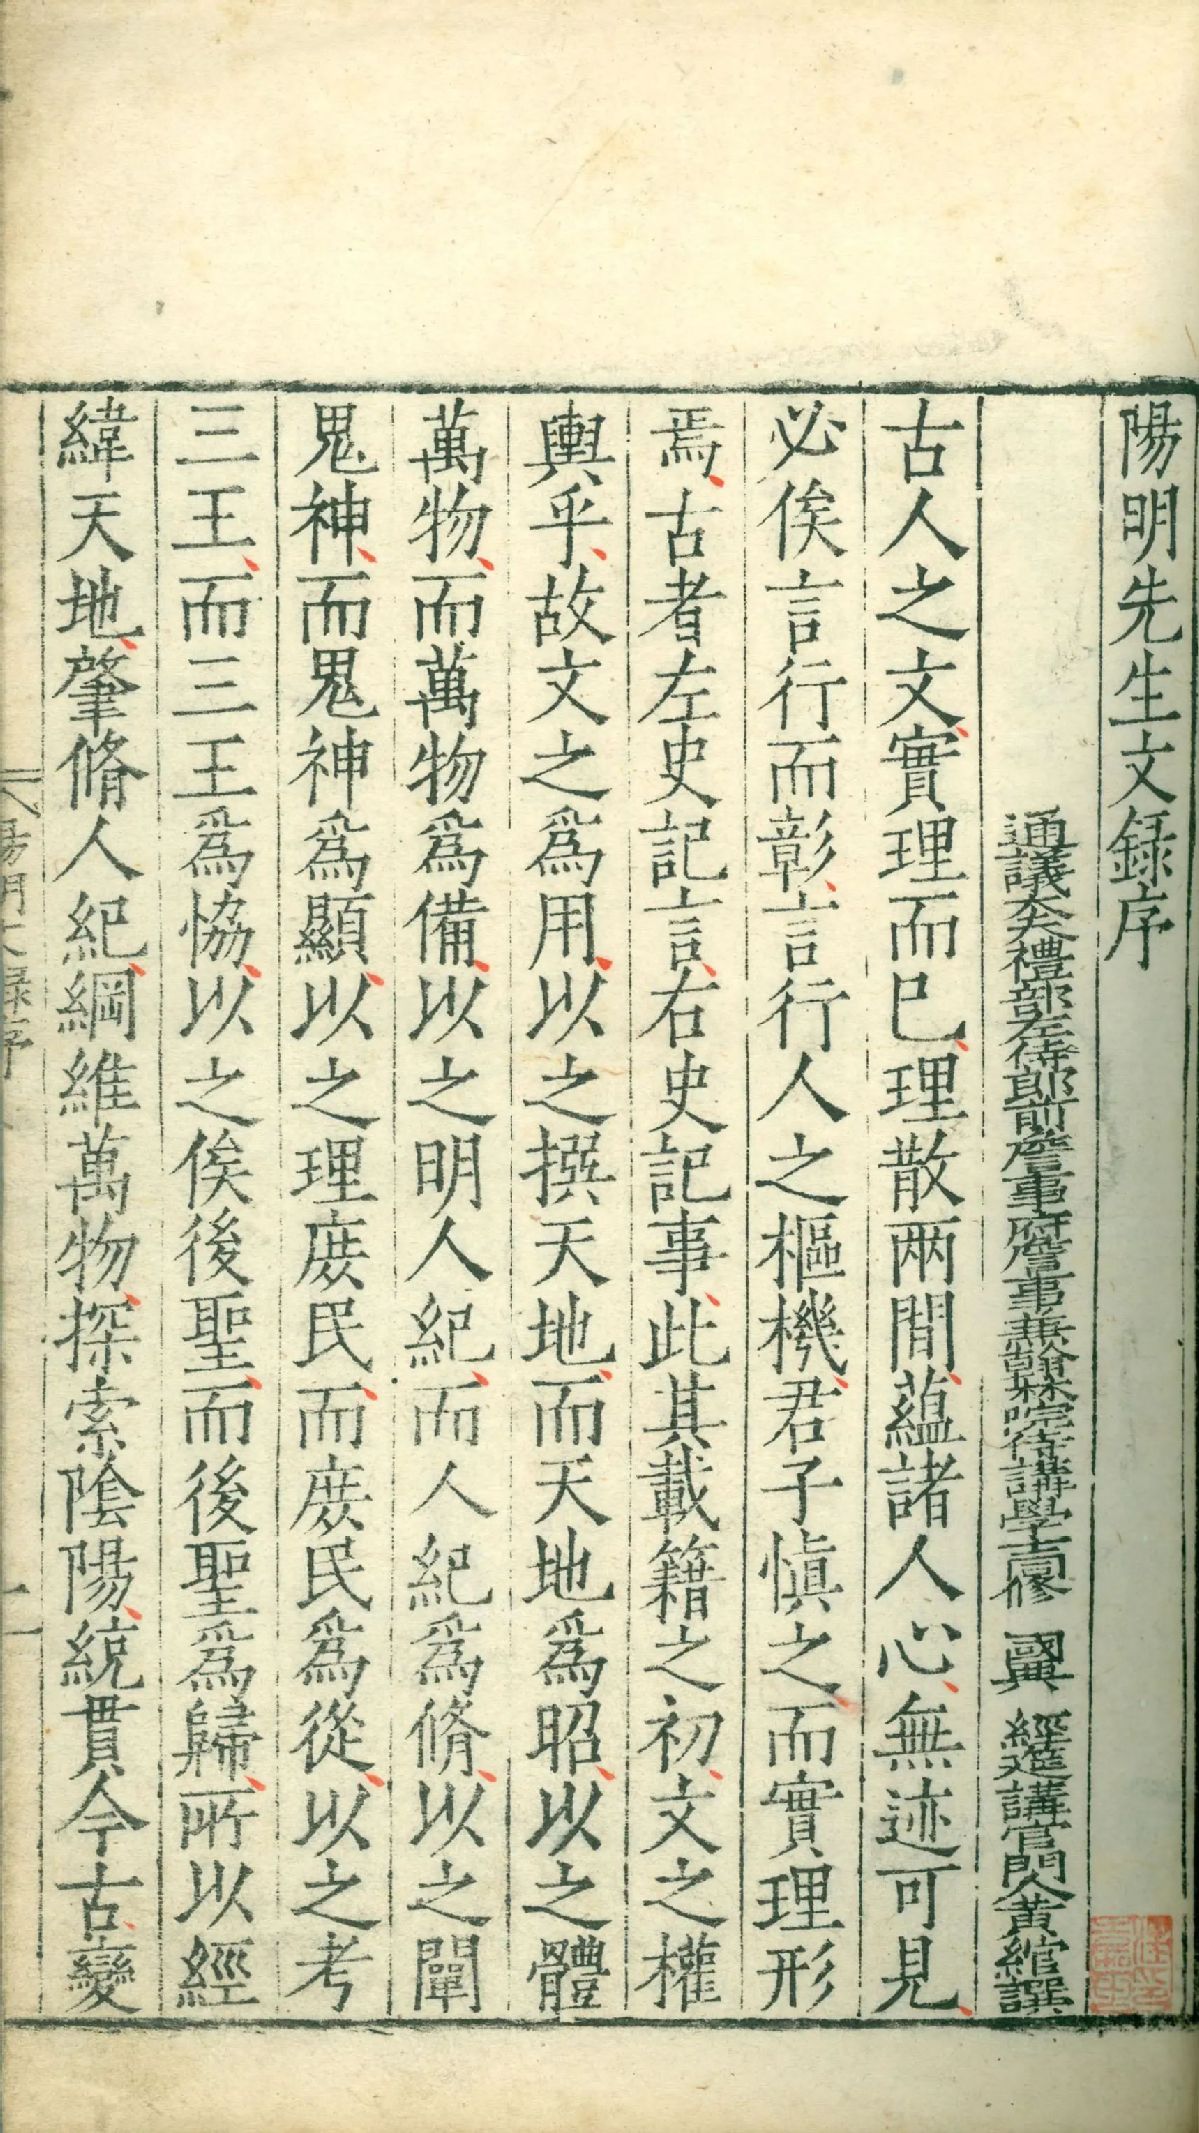 陽明先生文録序
通議大夫禮部左侍郎前詹事府詹事兼翰林院侍講學士同修　國典　經筵講官門人黃綰譔
古人之文實理而巳理散兩間蘊諸人心無迹可見
必俟言行而彰言行人之樞機君子慎之而實理形
焉古者左史記言右史記事此其載籍之初文之權
輿乎故文之爲用以之撰天地而天地爲昭以之體
萬物而萬物爲備以之明人紀而人紀爲脩以之闡
鬼神而鬼神爲顯以之理庶民而庶民爲從以之考
三王而三王爲恊以之俟後聖而後聖爲歸所以經
緯天地肇脩人紀綱維萬物探索陰陽統貫今古變
陽明文録序
一